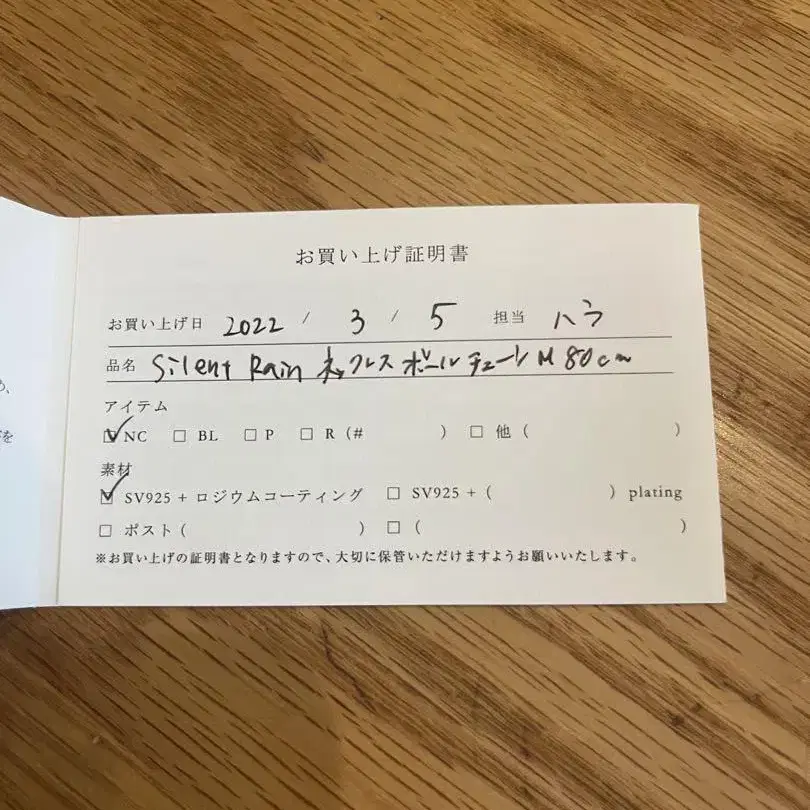 お買い上げ証明書
お買い上げ日 2022 / 3 / 5 担当 ハラ
品名 Silent Rain ネックレス ボールチェーン M 80cm
アイテム
☑ NC □ BL □ P □ R (# ) □ 他 ( )
素材
☑ SV925 + ロジウムコーティング □ SV925 + ( ) plating
□ ポスト ( ) □ ( )
※お買い上げの証明書となりますので、大切に保管いただけますようお願いいたします。